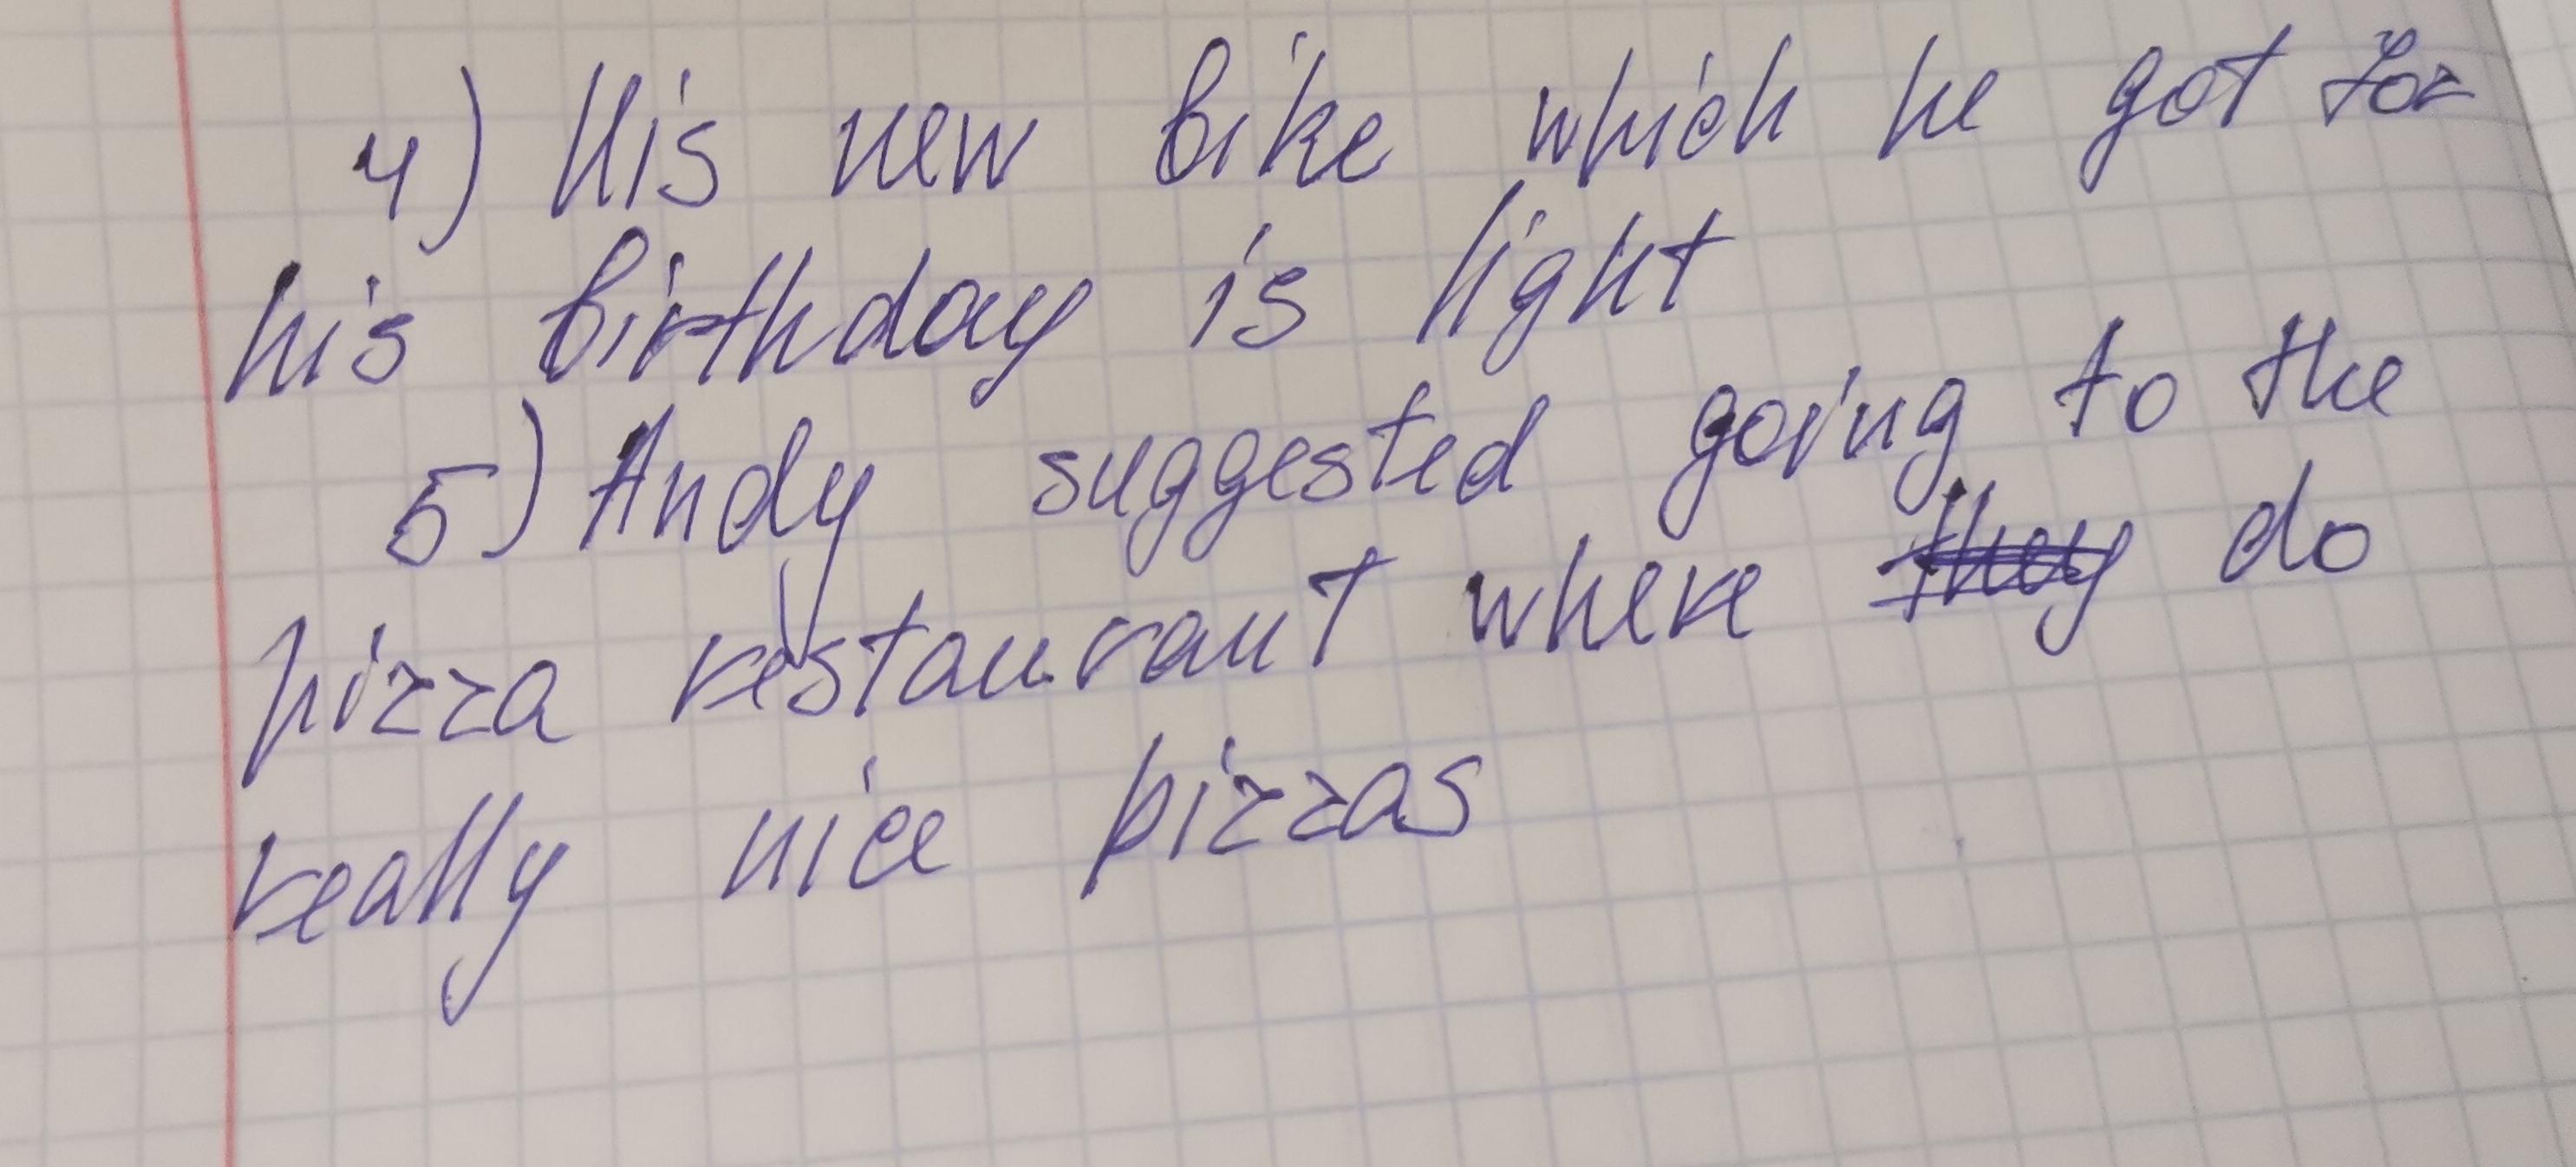 4) His new bike which he got for
his birthday is light
5) Andy suggested going to the
pizza restaurant where they do
really nice pizzas